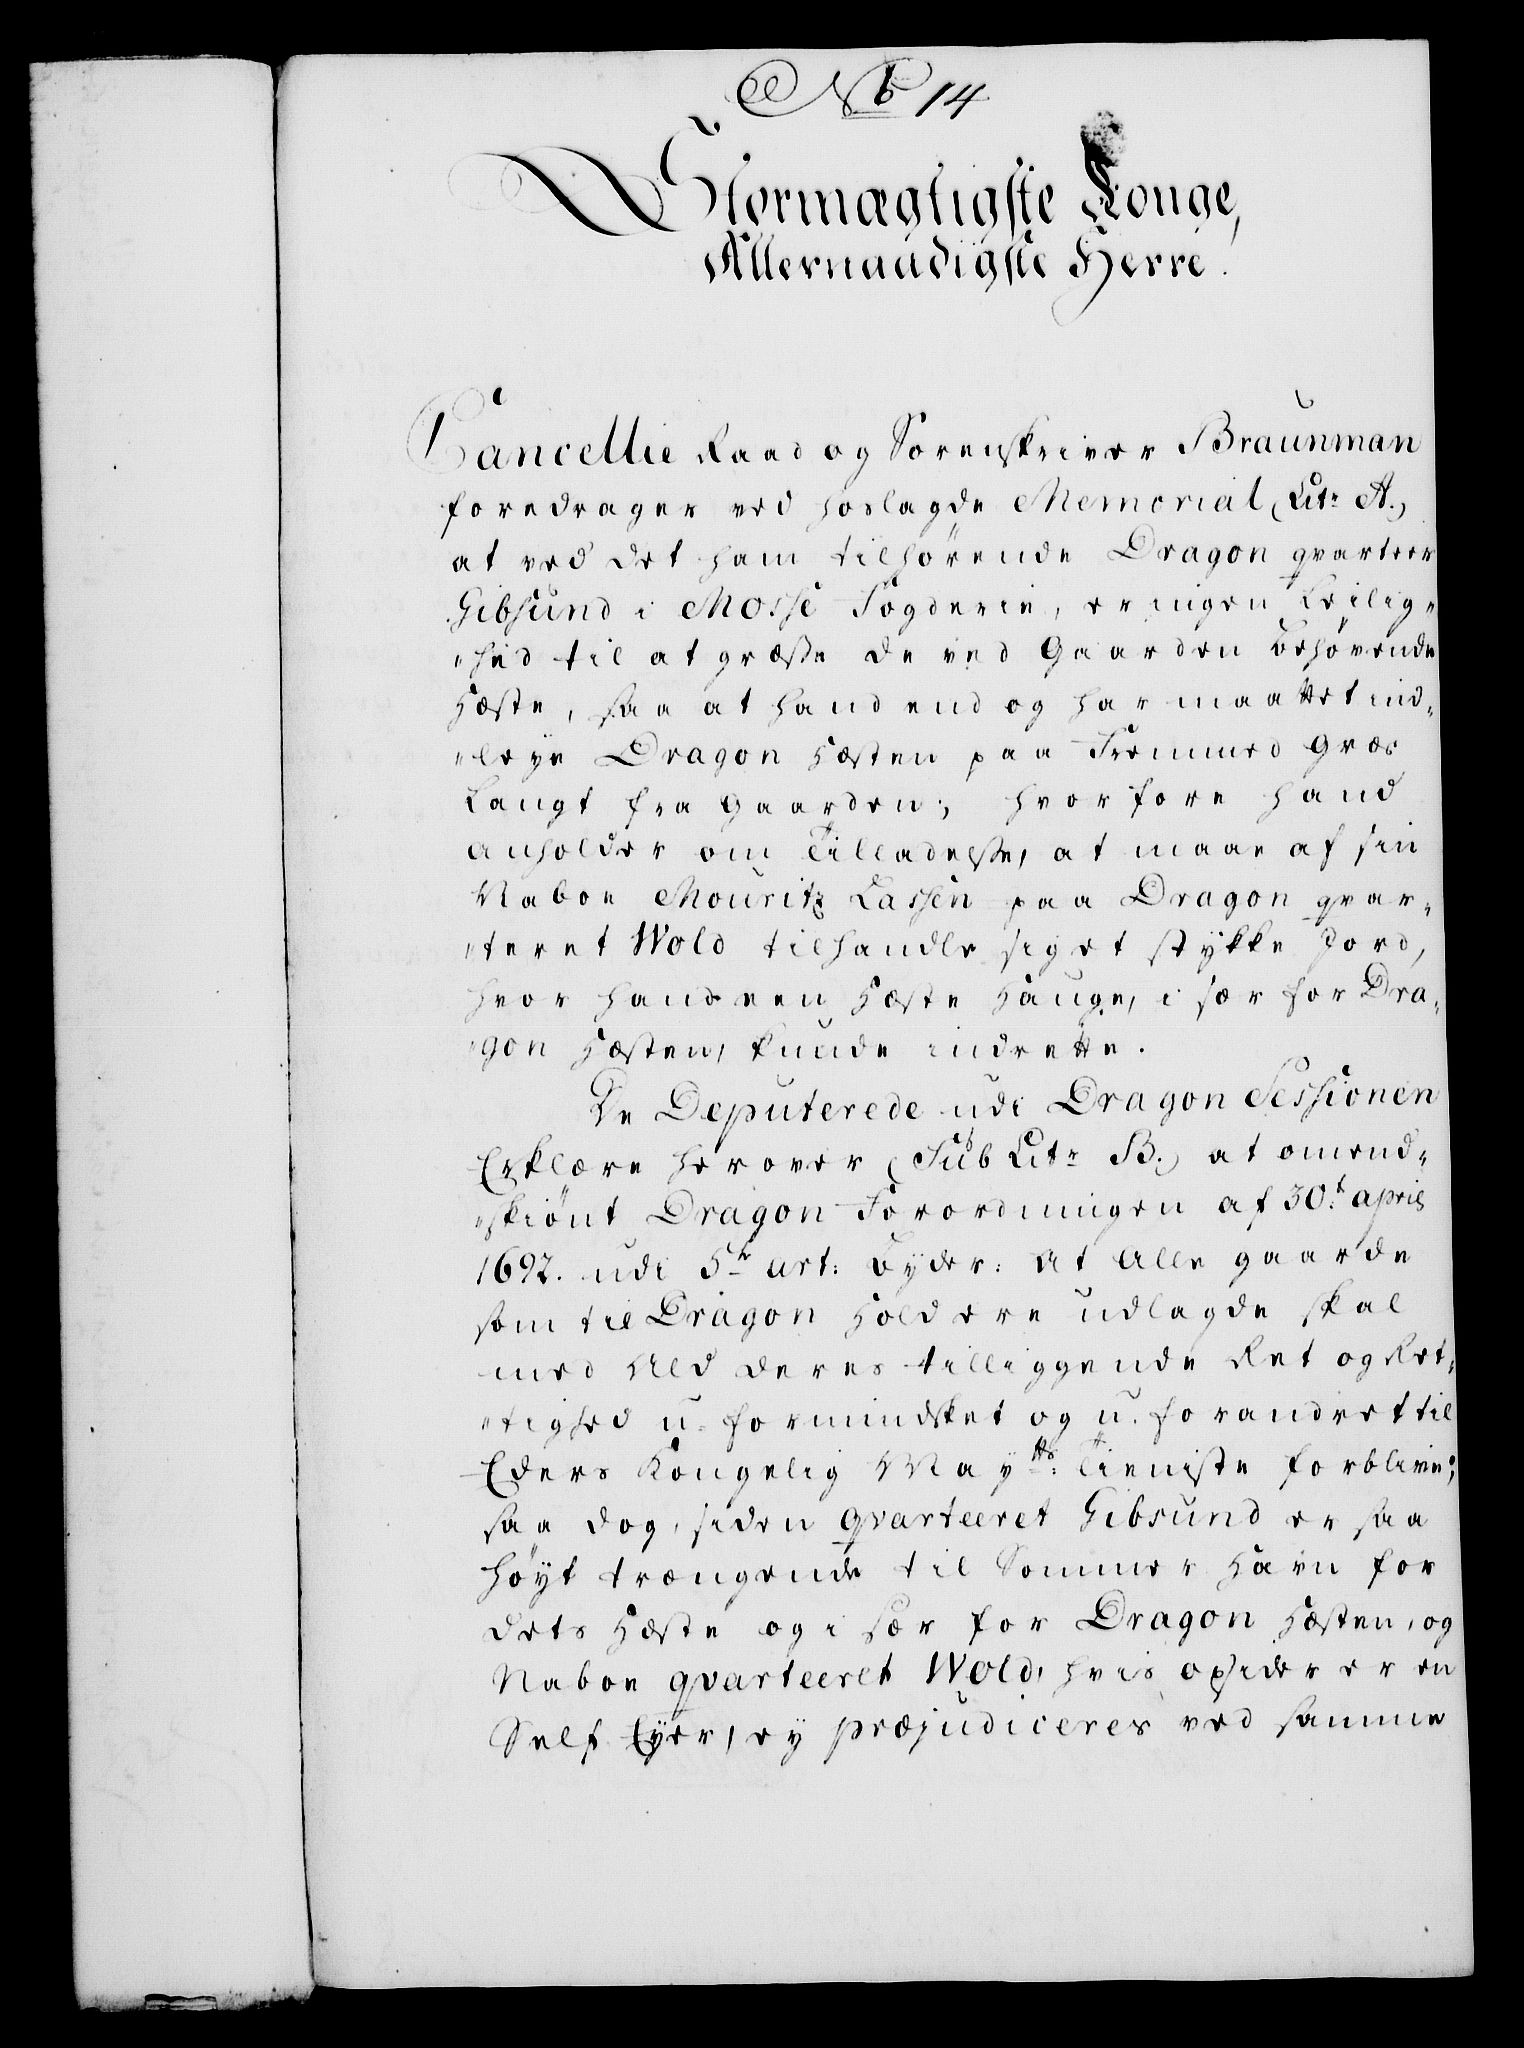 No 14
Stormægtigste Konge,
Allernaadigste Herre.
Cancellie Raad og Sorenskriver Braunman
foredrager ved hoslagde Memorial (Litr A.)
at ved det ham tilhørende Dragon qvarteer
Gibsund i Mosse Fogderie, er ingen Leilig„
„hed til at græsse de ved Gaarden behøvende
Hæste, saa at hand end og har maattet ind„
„leye Dragon Hæsten paa Fremmed Græs
langt fra Gaarden; hvorfore hand
anholder om Tilladelsse, at maae af sin
Naboe Mouritz Lassen paa Dragon qvar„
„teret Wold tilhandle sig et stykke Jord,
hvor hand een Hæste Hauge, i sær for Dra„
„gon Hæsten, kunde indrette.
De Deputerede udi Dragon Sessionen
Erklære herover (Sub Litr B.) at omend„
„skiønt Dragon Forordningen af 30.t april
1692. udi 5te art: byder: At Alle gaarde
som til Dragon Hold ere udlagde skal
med Ald deres tilliggende Ret og Ret„
„tighed u-formindsket og u-forandret til
Eders Kongelig Mayts: Tieniste forblive;
saa dog, siden qvarteeret Gibsund er saa
høyt trængende til Sommer Havn for
dets Hæste og i sær for Dragon Hæsten, og
Naboe qvarteeret Wold, hvis opsider er en
Self Eyer, ey præjudiceres ved samme